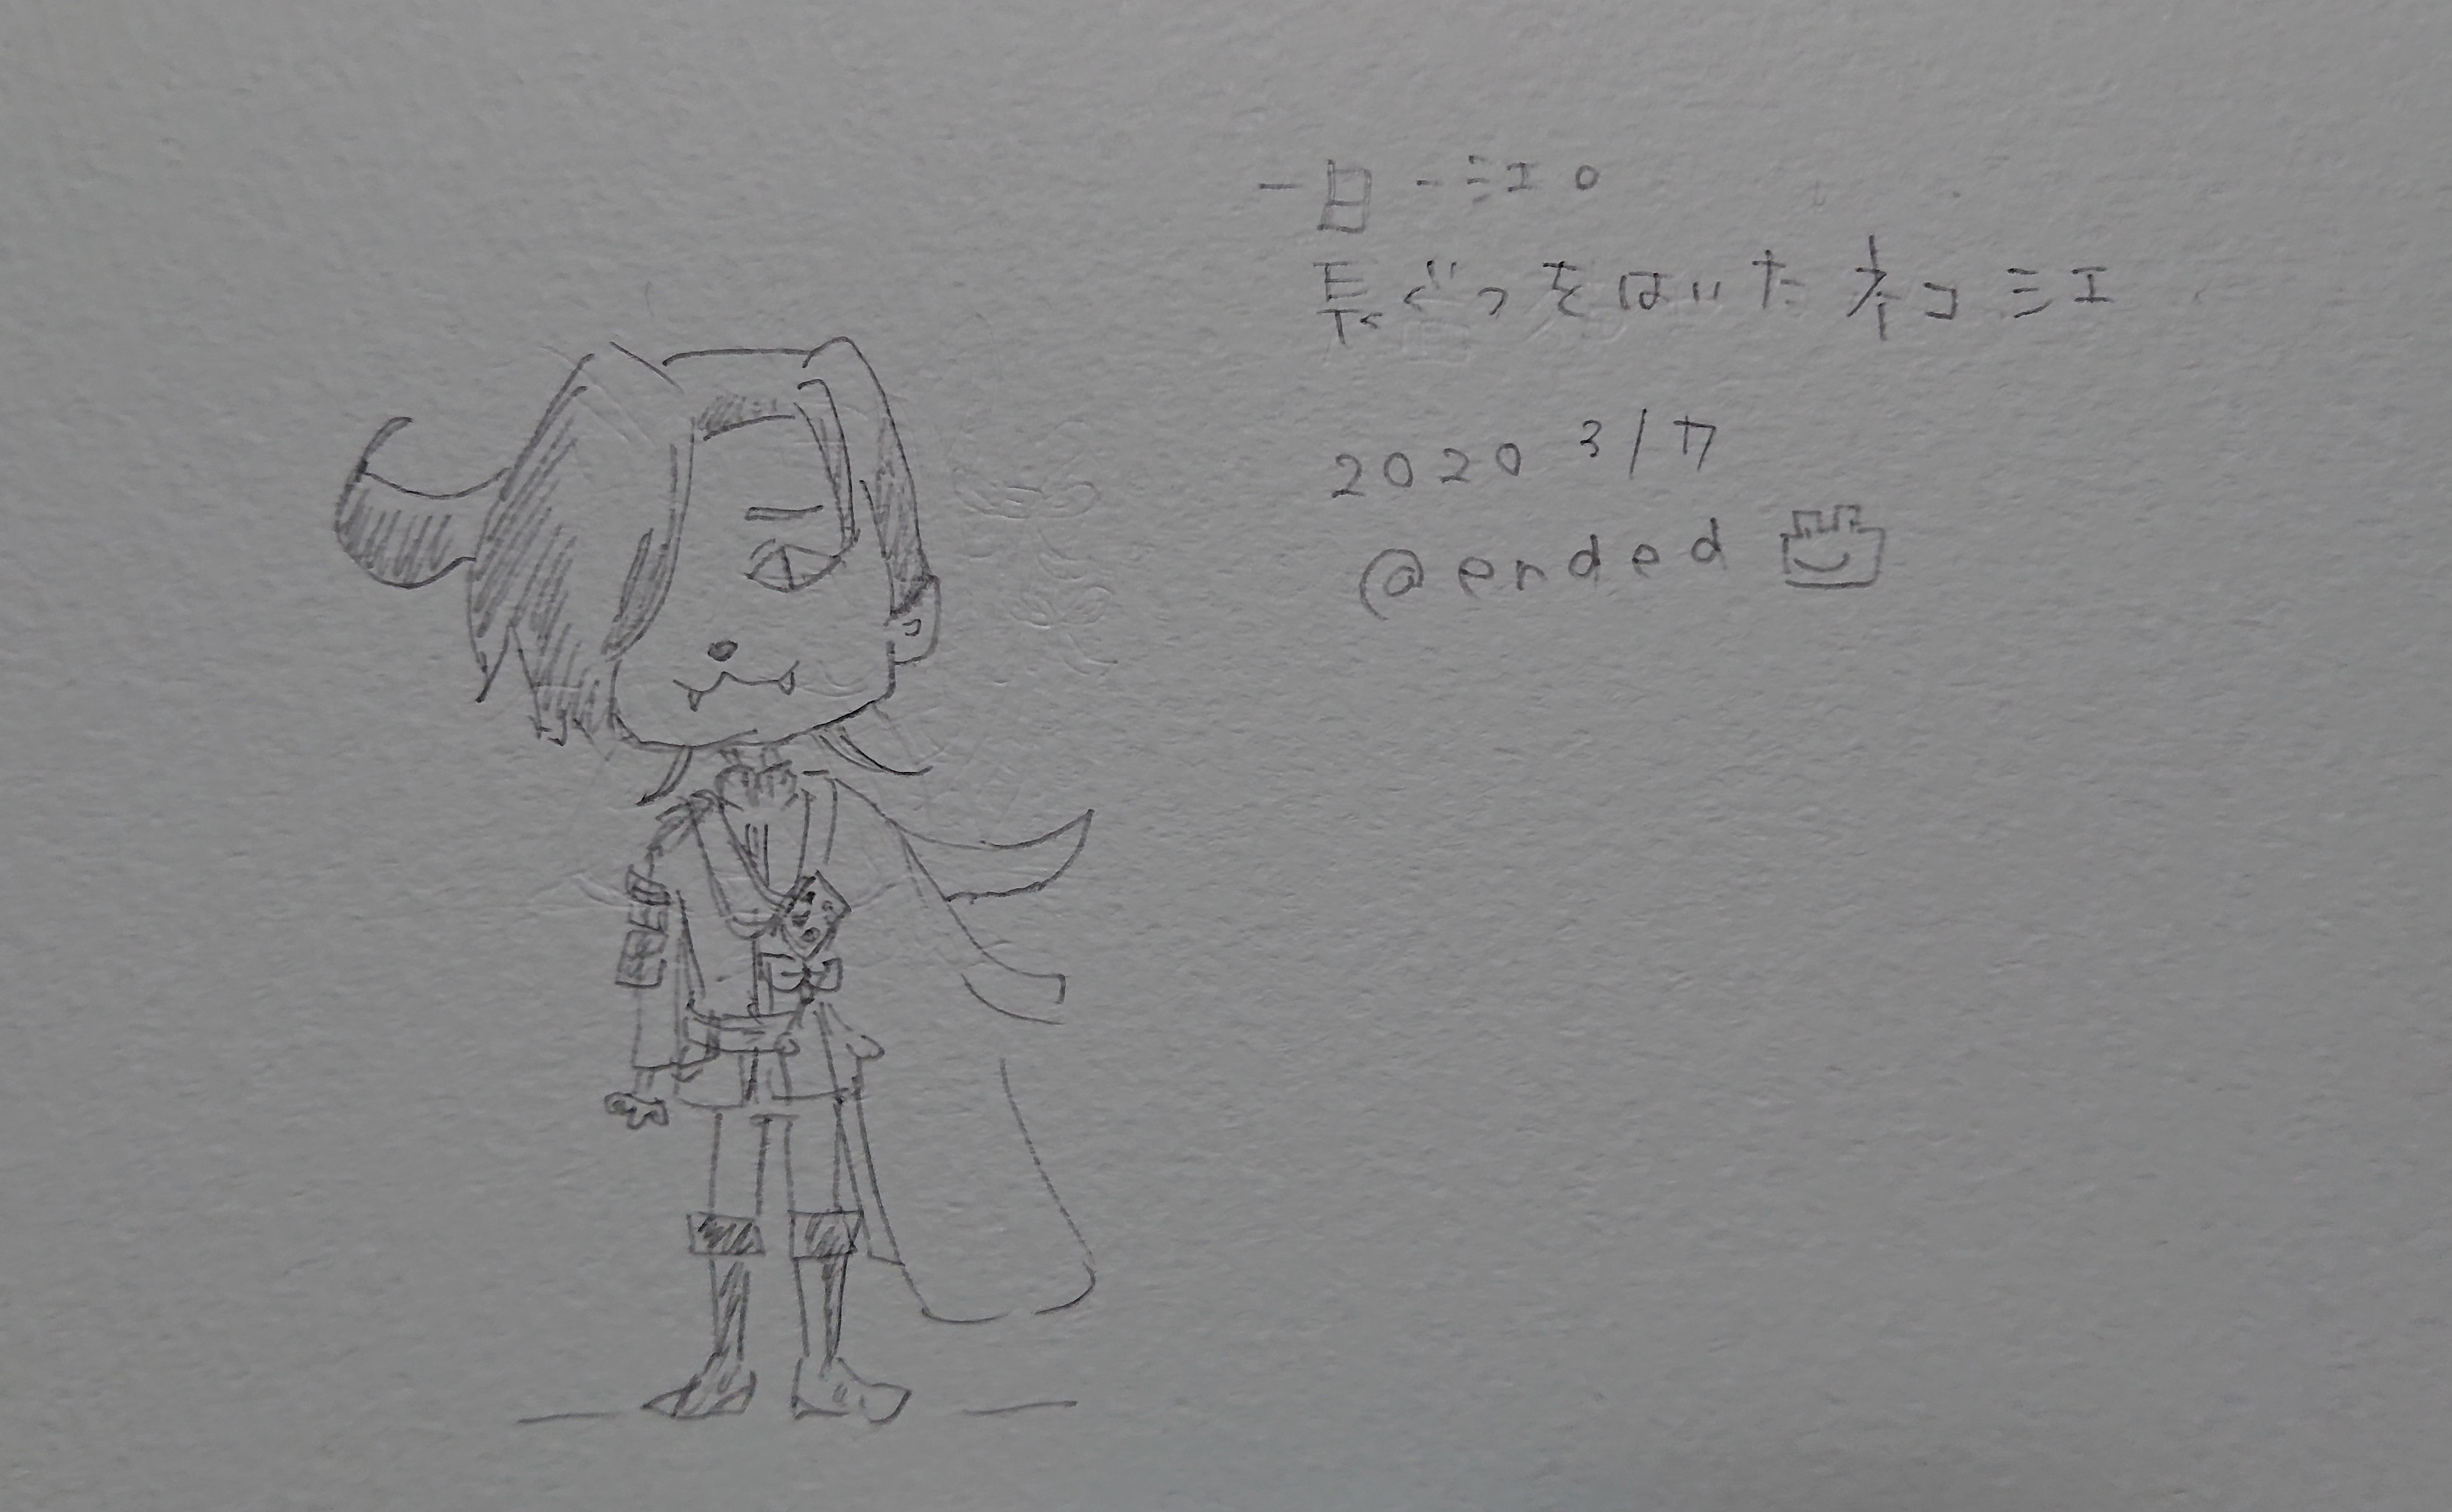 一日一ミエ。
長ぐつをはいたネコミエ
2020 3/17
@ended